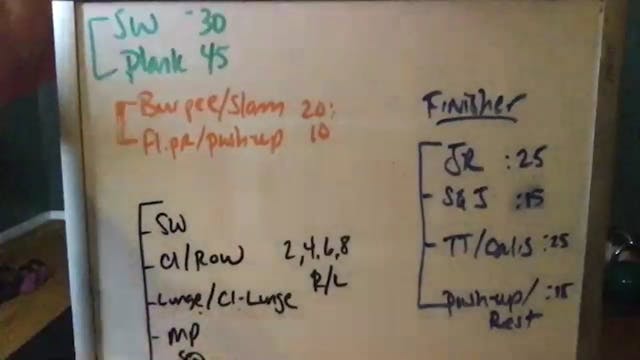 SW 30
Plank 45
Burpee/Slam 20:
Fl.pr/push-up 10
SW
Cl/Row 2,4,6,8
R/L
Lunge/Cl-Lunge
MP
SQ
Finisher
JR :25
S&J :15
TT/Calis :25
push-up/ :15
Rest